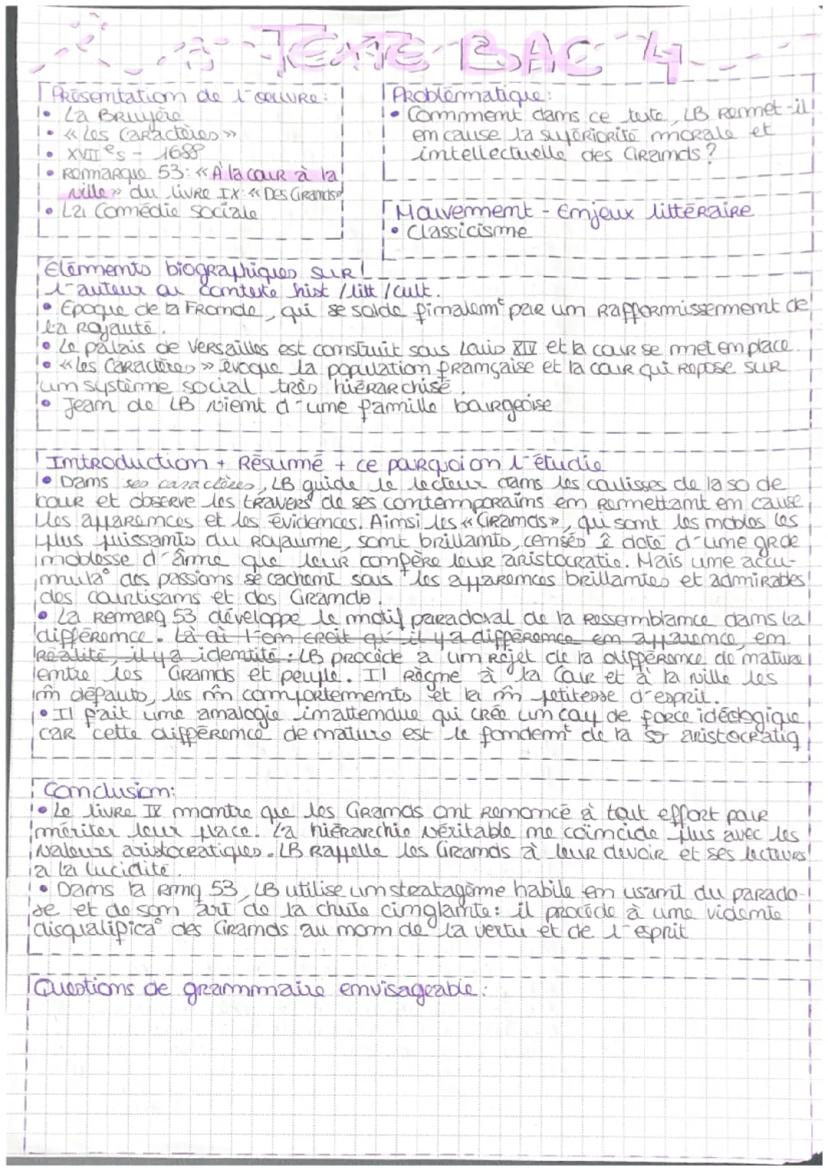 TEXTE BAC 4
Présentation de l'oeuvre:
• La Bruyère
• « Les Caractères »
• XVII es - 1688
• Remarque 53: « À la cour à la
ville » du livre IX: « Des Grands »
• La Comédie sociale
Problématique:
• Comment dans ce texte, LB remet-il
en cause la supériorité morale et
intellectuelle des Grands ?
Mouvement - Enjeux littéraire
• Classicisme
Eléments biographiques sur
l'auteur ou contexte hist / litt / cult.
• Epoque de la Fronde, qui se solde finalemt par un raffermissement de
la royauté.
• Le palais de Versailles est construit sous Louis XIV et la cour se met en place.
• « Les Caractères » évoque la population française et la cour qui repose sur
un système social très hiérarchisé.
• Jean de LB vient d'une famille bourgeoise
Introduction + Résumé + ce pourquoi on l'étudie
• Dans ses caractères, LB guide le lecteur dans les coulisses de la so de
cour et observe les travers de ses contemporains en remettant en cause
les apparences et les évidences. Ainsi les « Grands », qui sont les nobles les
plus puissants du Royaume, sont brillants, censés ê doté d'une grde
noblesse d'âme que leur confère leur aristocratie. Mais une accu-
mula° des passions se cachent sous les apparences brillantes et admirables
des courtisans et des Grands.
• La remarq 53 développe le motif paradoxal de la ressemblance dans la
différence. Là où l'on croit qu'il y a différence en apparence, en
réalité, il y a identité : LB procède à un rejet de la différence de nature
entre les Grands et peuple. Il règne à la Cour et à la ville les
m̂ défauts, les m̂ comportements et la m̂ petitesse d'esprit.
• Il fait une analogie inattendue qui crée un coup de force idéologique
car cette différence de nature est le fondemt de la so aristocratiq
Conclusion:
• Le livre IX montre que les Grands ont renoncé à tout effort pour
mériter leur place. La hiérarchie véritable ne coïncide plus avec les
valeurs aristocratiques. LB rappelle les Grands à leur devoir et ses lecteurs
à la lucidité.
• Dans la rmq 53, LB utilise un stratagème habile en usant du parado-
xe et de son art de la chute cinglante: il procède à une violente
disqualifica° des Grands au nom de la vertu et de l'esprit
Questions de grammaire envisageable: